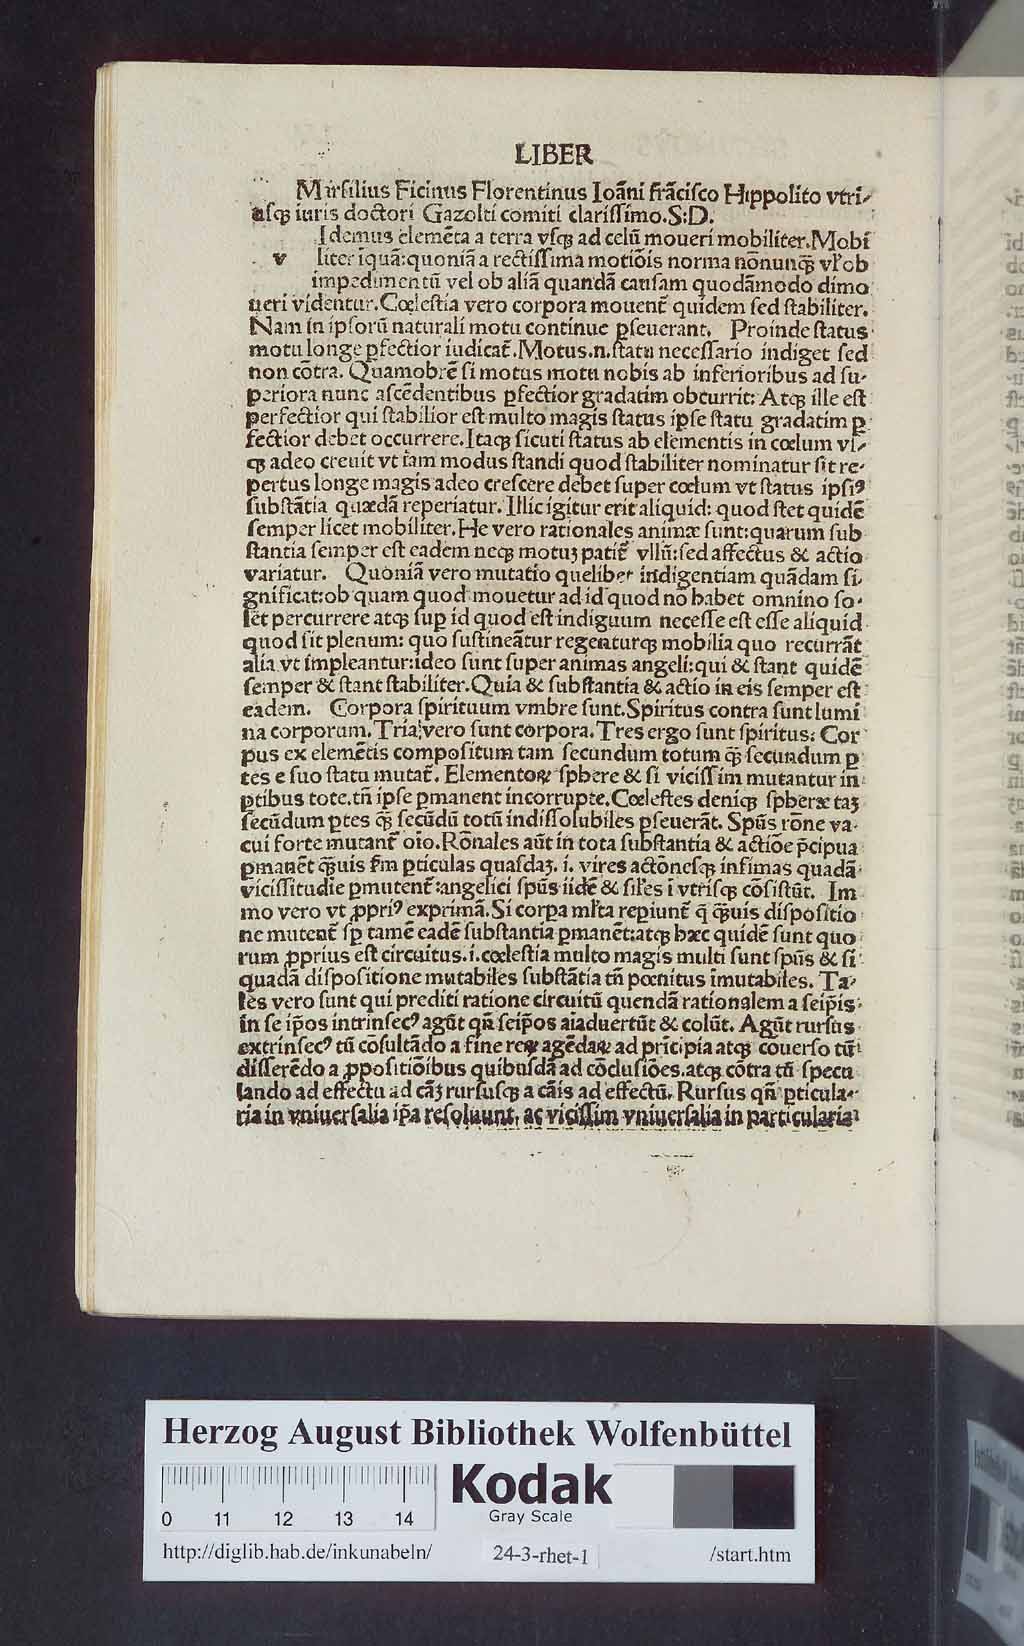 LIBER
Marsilius Ficinus Florentinus Ioãni frãcisco Hippolito vtri⸗
usqꝫ iuris doctori Gazolti comiti clarissimo.S:D.
Idemus elemẽta a terra vsqꝫ ad celũ moueri mobiliter.Mobi
v liter inquã:quoniã a rectissima motiõis norma nõnunqꝫ vl' ob
impedimentũ vel ob aliã quandã causam quodãmodo dimo
ueri videntur.Cœlestia vero corpora mouent̃ quidem sed stabiliter.
Nam in ipsorũ naturali motu continue ꝑseuerant. Proinde status
motu longe ꝑfectior iudicat̃.Motus.n.statu necessario indiget sed
non cõtra. Quamobrẽ si motus motu nobis ab inferioribus ad su⸗
periora nunc ascẽdentibus ꝑfectior gradatim obcurrit: Atqꝫ ille est
perfectior qui stabilior est multo magis status ipse statu gradatim ꝑ
fectior debet occurrere.Itaqꝫ sicuti status ab elementis in cœlum vs⸗
qꝫ adeo creuit vt tam modus standi quod stabiliter nominatur sit re⸗
pertus longe magis adeo crescere debet super cœlum vt status ipsiꝰ
substãtia quædã reperiatur. Illic igitur erit aliquid: quod stet quidẽ
semper licet mobiliter.He vero rationales animæ sunt:quarum sub
stantia semper est eadem neqꝫ motuꝫ patit̃ vllũ:sed affectus & actio
variatur. Quoniã vero mutatio quelibet indigentiam quãdam si⸗
gnificat:ob quam quod mouetur ad id quod nõ habet omnino so⸗
let percurrere atqꝫ suꝑ id quod est indiguum necesse est esse aliquid
quod sit plenum: quo sustineãtur regenturqꝫ mobilia quo recurrãt
alia vt impleantur:ideo sunt super animas angeli:qui & stant quidẽ
semper & stant stabiliter.Quia & substantia & actio in eis semper est
eadem. Corpora spirituum vmbre sunt.Spiritus contra sunt lumi
na corporum.Tria vero sunt corpora.Tres ergo sunt spiritus: Cor
pus ex elemẽtis compositum tam secundum totum qꝫ̃ secundum ꝑ
tes e suo statu mutat̃. Elementoꝝ sphere & si vicissim mutantur in
ꝑtibus tote.tñ ipse ꝑmanent incorrupte.Cœlestes deniqꝫ spheræ taꝫ
secũdum ꝑtes qꝫ̃ secũdũ totũ indissolubiles ꝑseuerãt. Spũs rõne va⸗
cui forte mutant̃ oĩo.Rõnales aũt in tota substantia & actiõe p̃cipua
ꝑmanẽt qꝫ̃uis fm̃ ꝑticulas quasdaꝫ. i. vires actõnesqꝫ infimas quadã
vicissitudie ꝑmutent̃:angelici spũs iidẽ & sil'es ĩ vtrisqꝫ cõsistũt. Im
mo vero vt ꝓpriꝰ exprimã.Si corꝑa ml'ta reꝑiunt̃ q̃ qꝫ̃uis dispositio
ne mutent̃ sꝑ tamẽ eadẽ substantia ꝑmanẽt:atqꝫ hæc quidẽ sunt quo
rum ꝓprius est circuitus.i.cœlestia multo magis multi sunt spũs & si
quadã dispositione mutabiles substãtia tñ pœnitus ĩmutabiles. Ta⸗
les vero sunt qui prediti ratione circuitũ quendã rationalem a seip̃is
in se ip̃os intrinsecꝰ agũt qñ seip̃os aĩaduertũt & colũt. Agũt rursus
extrinsecꝰ tũ cõsultãdo a fine reꝝ agẽdaꝝ ad prĩcipia atqꝫ cõuerso tũ
disserẽdo a ꝓpositiõibus quibusdã ad cõclusiões.atqꝫ cõtra tũ specu
lando ad effectu ad cãꝫ rursusqꝫ a cãis ad effectũ. Rursus qñ ꝑticula⸗
ria in vniuersalia ip̃a resoluunt, ac vicissim vniuersalia in particularia
Herzog August Bibliothek Wolfenbüttel
Kodak
Gray Scale
0 11 12 13 14
http://diglib.hab.de/inkunabeln/ 24-3-rhet-1 /start.htm